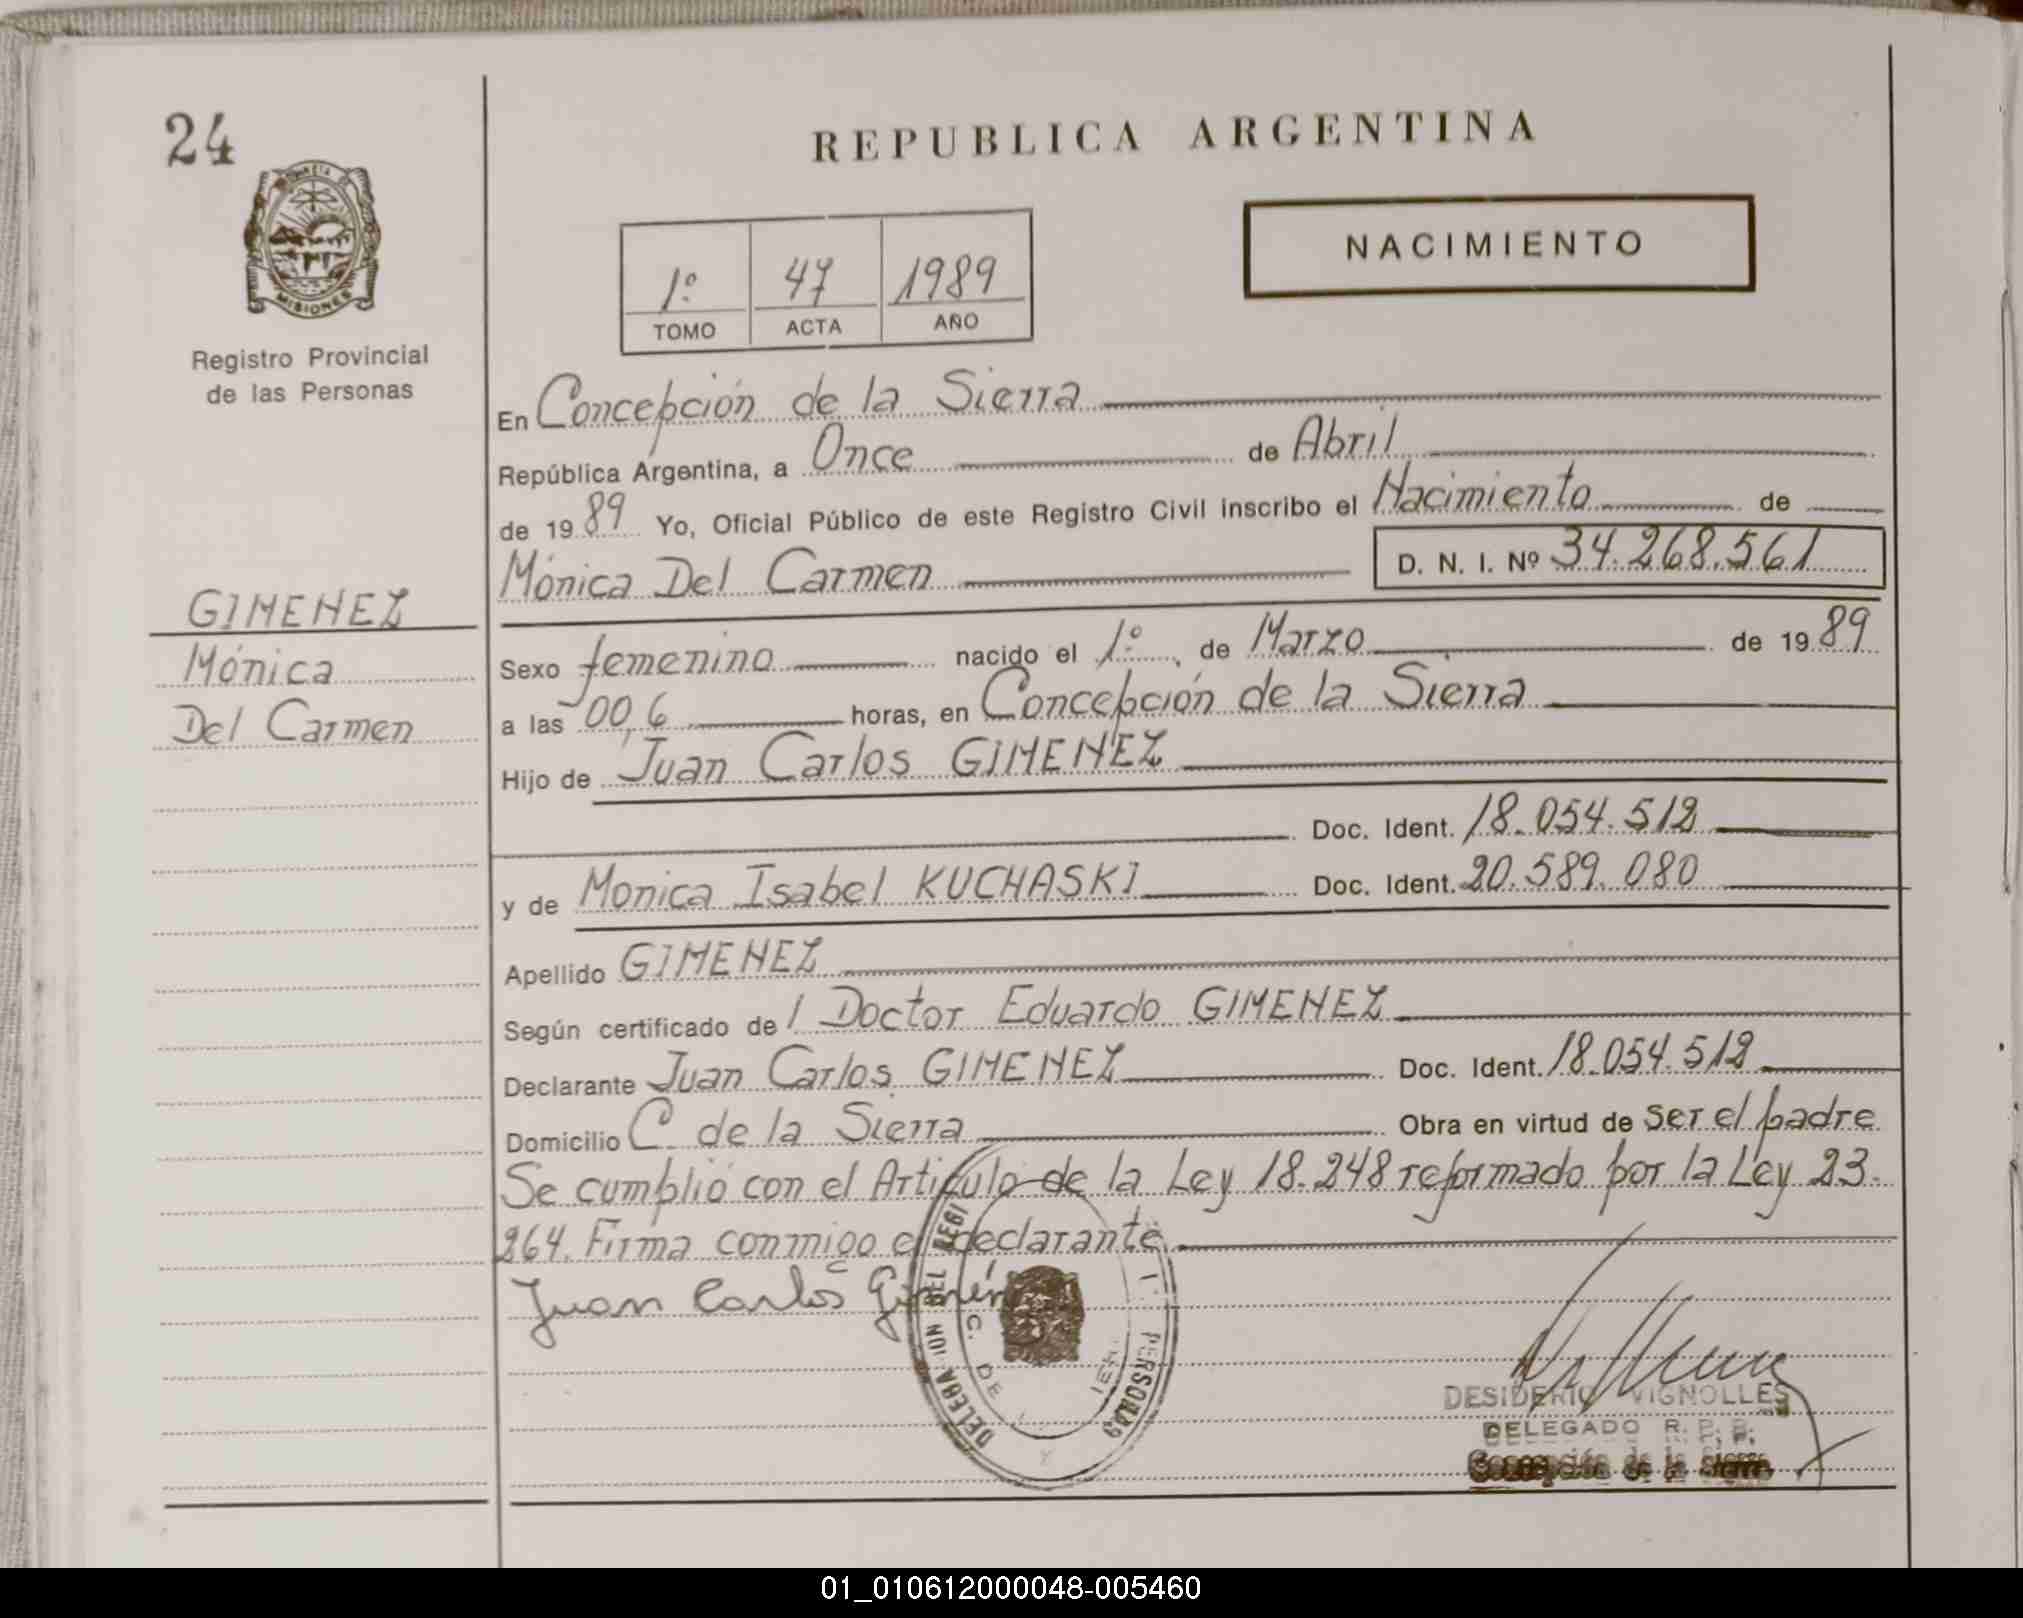 24
REPUBLICA ARGENTINA
NACIMIENTO
1º 47 1989
TOMO ACTA AÑO
MISIONES
Registro Provincial
de las Personas
En Concepción de la Sierra
República Argentina, a Once de Abril
de 1989 Yo, Oficial Público de este Registro Civil inscribo el Nacimiento de
Mónica Del Carmen D. N. I. Nº 34.268.561
GIMENEZ
Mónica
Del Carmen
Sexo femenino nacido el 1º de Marzo de 1989
a las 00,6 horas, en Concepción de la Sierra
Hijo de Juan Carlos GIMENEZ
Doc. Ident. 18.054.512
y de Monica Isabel KUCHASKI Doc. Ident. 20.589.080
Apellido GIMENEZ
Según certificado de l Doctor Eduardo GIMENEZ
Declarante Juan Carlos GIMENEZ Doc. Ident. 18.054.512
Domicilio C. de la Sierra Obra en virtud de Ser el padre
Se cumplió con el Artículo de la Ley 18.248 reformado por la Ley 23.
264. Firma conmigo el declarante
Juan Carlos
DESIDERIO VIGNOLLES
DELEGADO R. P. P.
Concepción de la Sierra
01_010612000048-005460